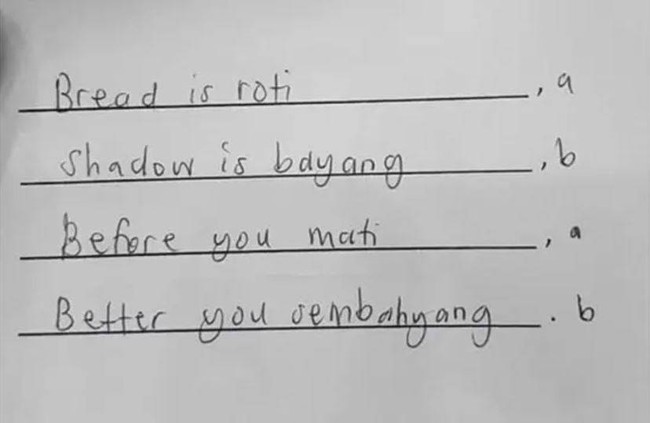 Bread is roti , a
Shadow is bayang , b
Before you mati , a
Better you sembahyang . b